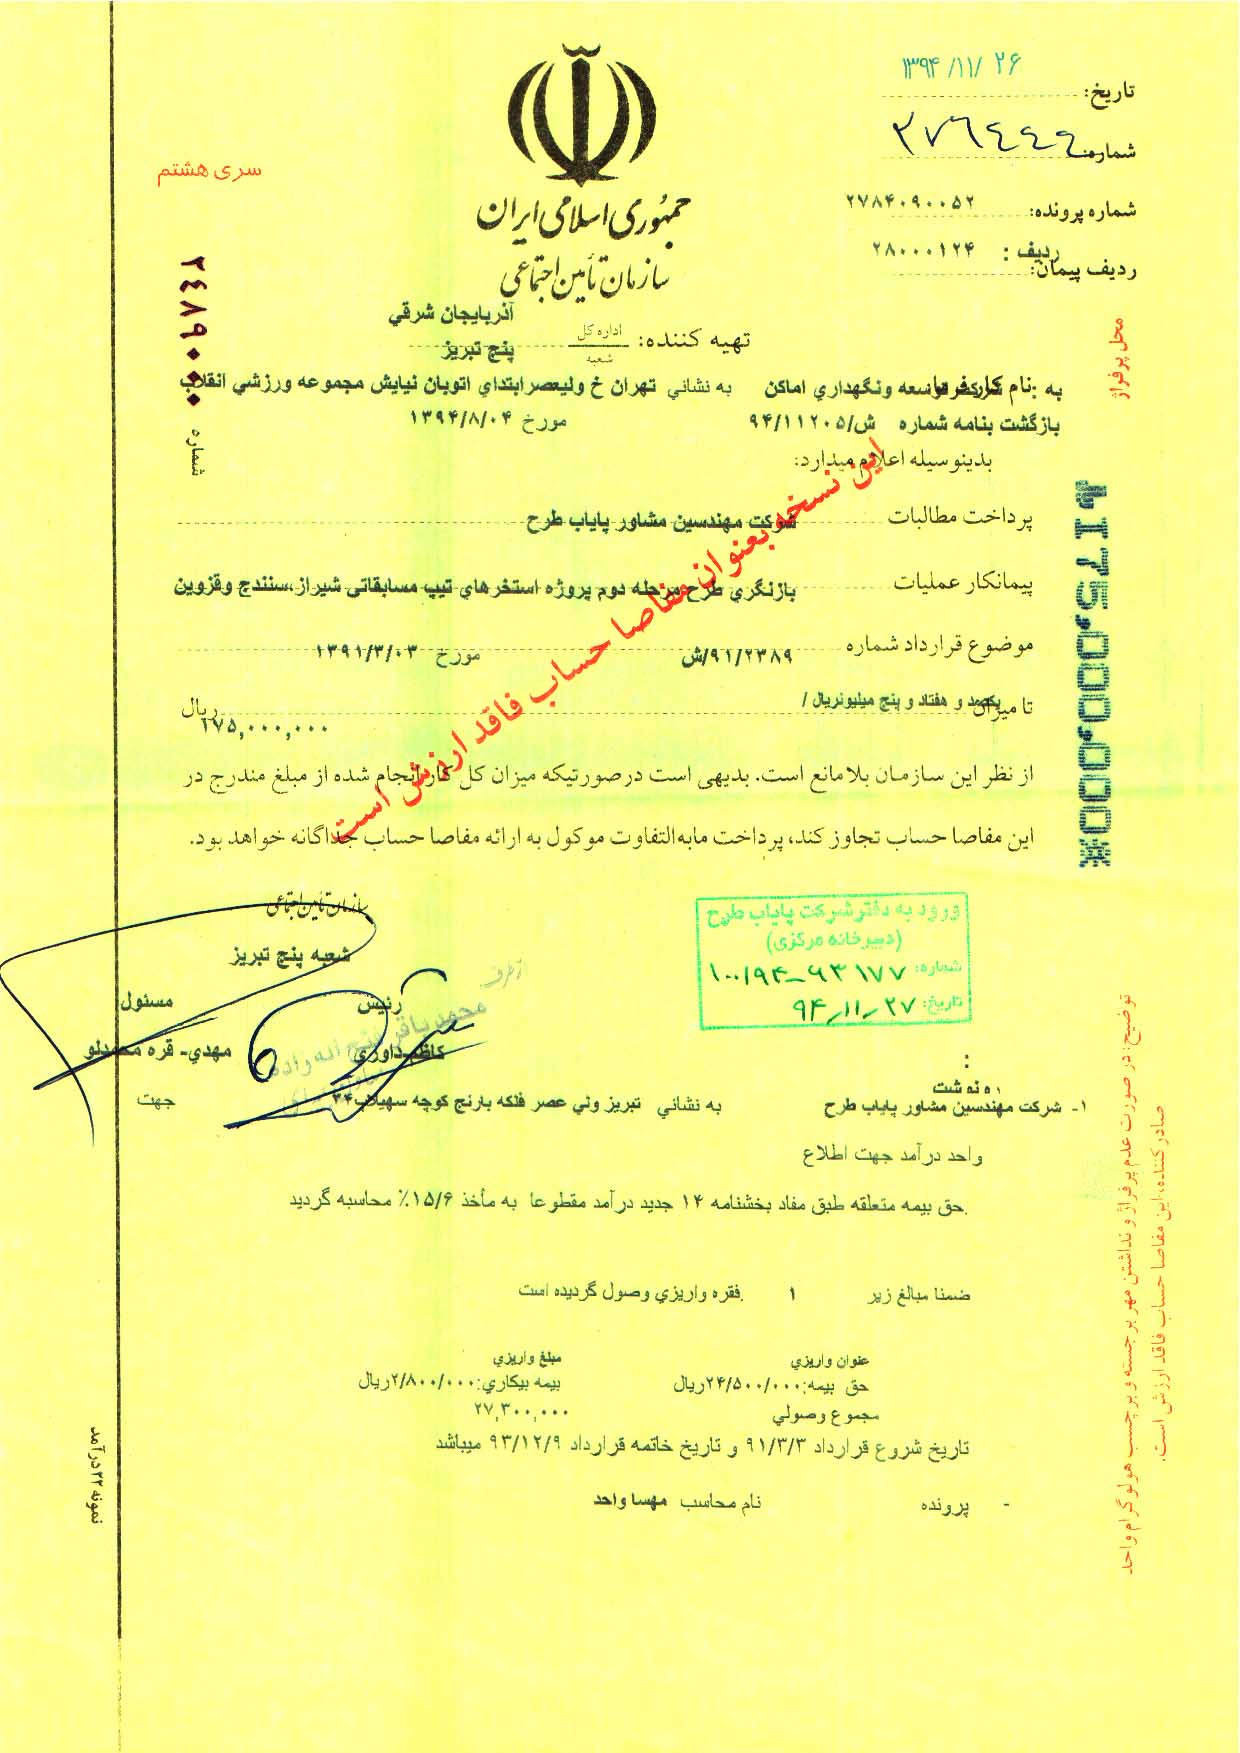 تاریخ: ۱۳۹۴/۱۱/۲۶
شماره:
شماره پرونده: ۲۷۸۴۰۹۰۰۵۲
ردیف : ۲۸۰۰۰۱۲۴
ردیف پیمان:
سری هشتم
شماره
جمهوری اسلامی ایران
سازمان تأمین اجتماعی
آذربايجان شرقي
تهیه کننده: اداره کل
شعبه
پنج تبريز
محل پرفراژ
به : نام کارفرما توسعه ونگهداري اماکن به نشاني تهران خ وليعصرابتداي اتوبان نيايش مجموعه ورزشي انقلاب
بازگشت بنامه شماره ش/۹۴/۱۱۲۰۵ مورخ ۱۳۹۴/۸/۰۴
بدینوسیله اعلام میدارد:
پرداخت مطالبات شرکت مهندسین مشاور پایاب طرح
پیمانکار عملیات بازنگري طرح مرحله دوم پروژه استخرهاي تيپ مسابقاتي شيراز،سنندج وقزوين
موضوع قرارداد شماره ۹۱/۲۳۸۹/ش مورخ ۱۳۹۱/۳/۰۳
تا میزان یکصد و هفتاد و پنج ميليونريال /
۱۷۵,۰۰۰,۰۰۰ ریال
از نظر این سازمان بلامانع است. بدیهی است درصورتیکه میزان کل کار انجام شده از مبلغ مندرج در
این مفاصا حساب تجاوز کند، پرداخت مابه‌التفاوت موکول به ارائه مفاصا حساب جداگانه خواهد بود.
این نسخه بعنوان مفاصا حساب فاقد ارزش است
175,000,000*
سازمان تأمین اجتماعی
شعبه پنج تبريز
رئيس
مسئول
کاظم-داوري
مهدي- قره محمدلو
از طرف
ورود به دفتر شرکت پایاب طرح
(دبیرخانه مرکزی)
شماره: ۱۰۰/۹۴-۹۳۱۷۷
تاریخ: ۹۴-۱۱-۲۷
:
۱- شرکت مهندسين مشاور پاياب طرح به نشاني تبريز ولي عصر فلکه بارنج کوچه سهيلاب۳۴ جهت
واحد درآمد جهت اطلاع
حق بيمه متعلقه طبق مفاد بخشنامه ۱۴ جديد درآمد مقطوعا به مأخذ ۱۵/۶٪ محاسبه گرديد.
ضمنا مبالغ زير ۱ فقره واريزي وصول گرديده است.
عنوان واريزي مبلغ واريزي
حق بيمه:۲۴/۵۰۰/۰۰۰ريال بيمه بيکاري:۲/۸۰۰/۰۰۰ريال
مجموع وصولي ۲۷,۳۰۰,۰۰۰
تاريخ شروع قرارداد ۹۱/۳/۳ و تاريخ خاتمه قرارداد ۹۳/۱۲/۹ ميباشد
- پرونده نام محاسب مهسا واحد
توضیح: در صورت عدم پرفراژ و نداشتن مهر برجسته و برچسب هولوگرام واحد
صادرکننده، این مفاصا حساب فاقد ارزش است.
نمونه ۲۲ درآمد